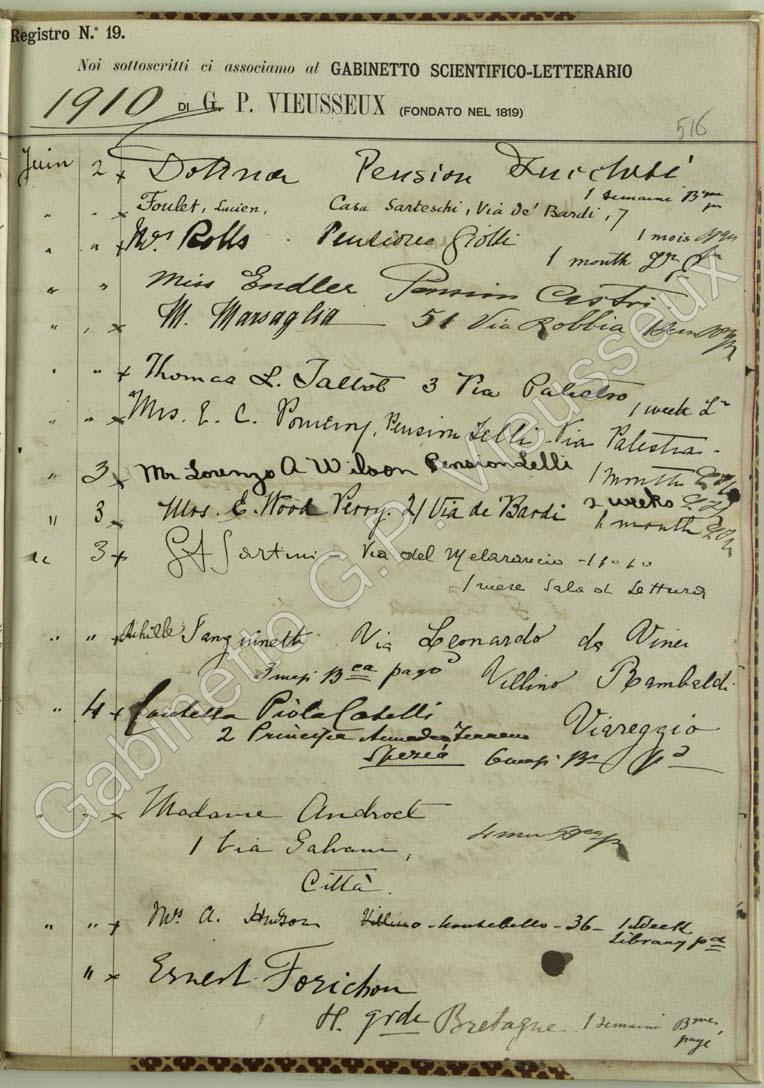 Registro N.° 19.
Noi sottoscritti ci associamo al GABINETTO SCIENTIFICO-LETTERARIO
1910 DI G. P. VIEUSSEUX (FONDATO NEL 1819)
516
Juin 2 x Pension
1 semaine Bme
" " x Foulet, Lucien, Casa Sarteschi, Via de' Bardi, 7
" " x Mrs Rolls Pensione Giotti 1 mois
1 month
" " Miss Endler Pension Castri
" " x M. Marsaglia 51 Via Robbia
" " x Thomas L. Talbot 3 Via Palestro
1 week
" " x Mrs. E. C. Pomeroy, Pension Lelli Via Palestro -
" 3 x Mr Lorenzo A Wilson Pension Lelli 1 month
" 3 x Mrs. E. Wood Perry. 21 Via de Bardi 2 weeks
1 month
3 x G A Sartini - Via del Melarancio
1 mese Sala di Lettura
" " x Achille Sanguinetti Via Leonardo da Vinci
3 mesi Bca pago Villino Rambaldi
" 4 x Piola Caselli Viareggio
2 Principe Amedeo Terreno
Spezia 6 mesi pd
" x Madame Androet
1 Via Galvani,
Città.
" " x Mrs A. Hudson Villino Montebello - 36 - 1 Week
Library pd
" x Ernest Forichon
H. grde Bretagne 1 semaine Bme
payé
Gabinetto G.P. Vieusseux